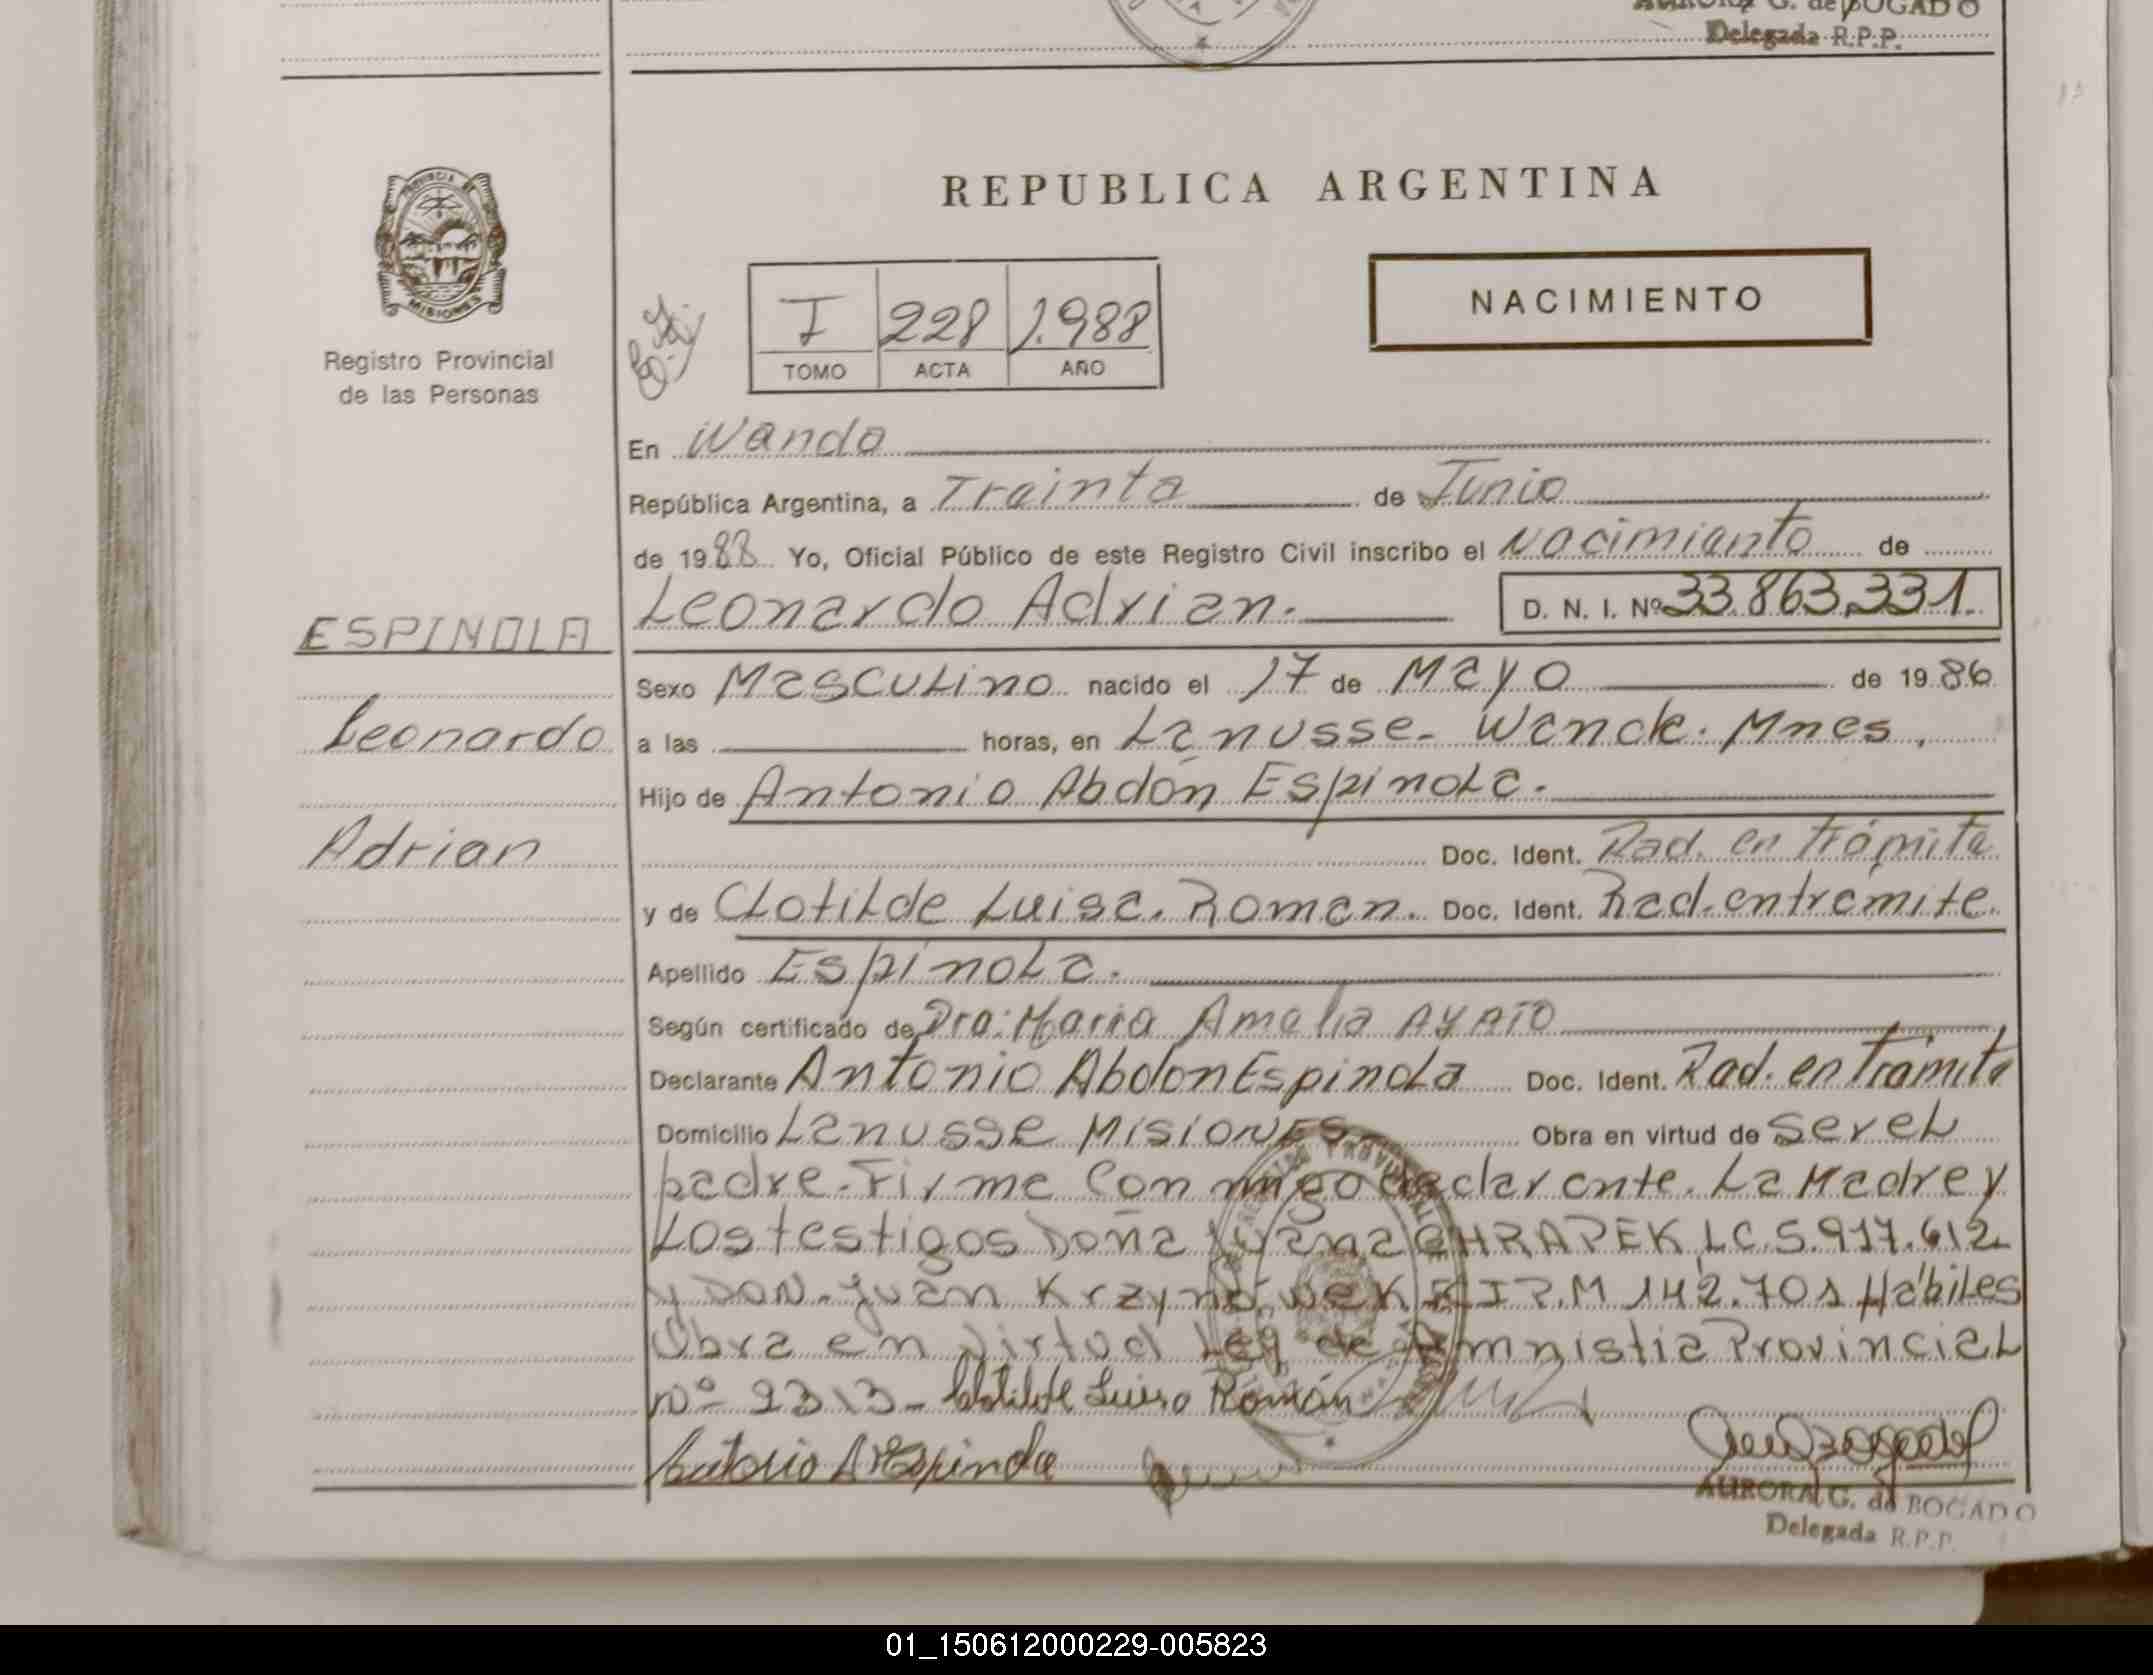 AURORA G. de BOGADO
Delegada R.P.P.
REPUBLICA ARGENTINA
NACIMIENTO
I 228 1.988
TOMO ACTA AÑO
Registro Provincial
de las Personas
En Wanda
República Argentina, a Treinta de Junio
de 1988 Yo, Oficial Público de este Registro Civil inscribo el Nacimiento de
Leonardo Adrian. D. N. I. Nº 33.863.331.
ESPINOLA
Leonardo
Adrian
Sexo Masculino nacido el 17 de Mayo de 1986
a las horas, en Lanusse- Wanda. Mnes.
Hijo de Antonio Abdón Espinola.
Doc. Ident. Rad. en trámite
y de Clotilde Luisa. Roman. Doc. Ident. Rad. en tramite.
Apellido Espinola.
Según certificado de Dra: Maria Amalia
Declarante Antonio Abdon Espinola Doc. Ident. Rad. en Trámite
Domicilio Lanusse MISIONES Obra en virtud de ser el
padre. Firma Con migo declarante. La Madre y
Los testigos Doña Juana CHRAPEK LC.5.917.612
y DON. Juan M 142.701 Hábiles
Obra en Virtud Ley de Amnistia Provincial
Nº 2313- Clotilde Luisa Román
Antonio A Espinola
AURORA G. de BOGADO
Delegada R.P.P.
01_150612000229-005823